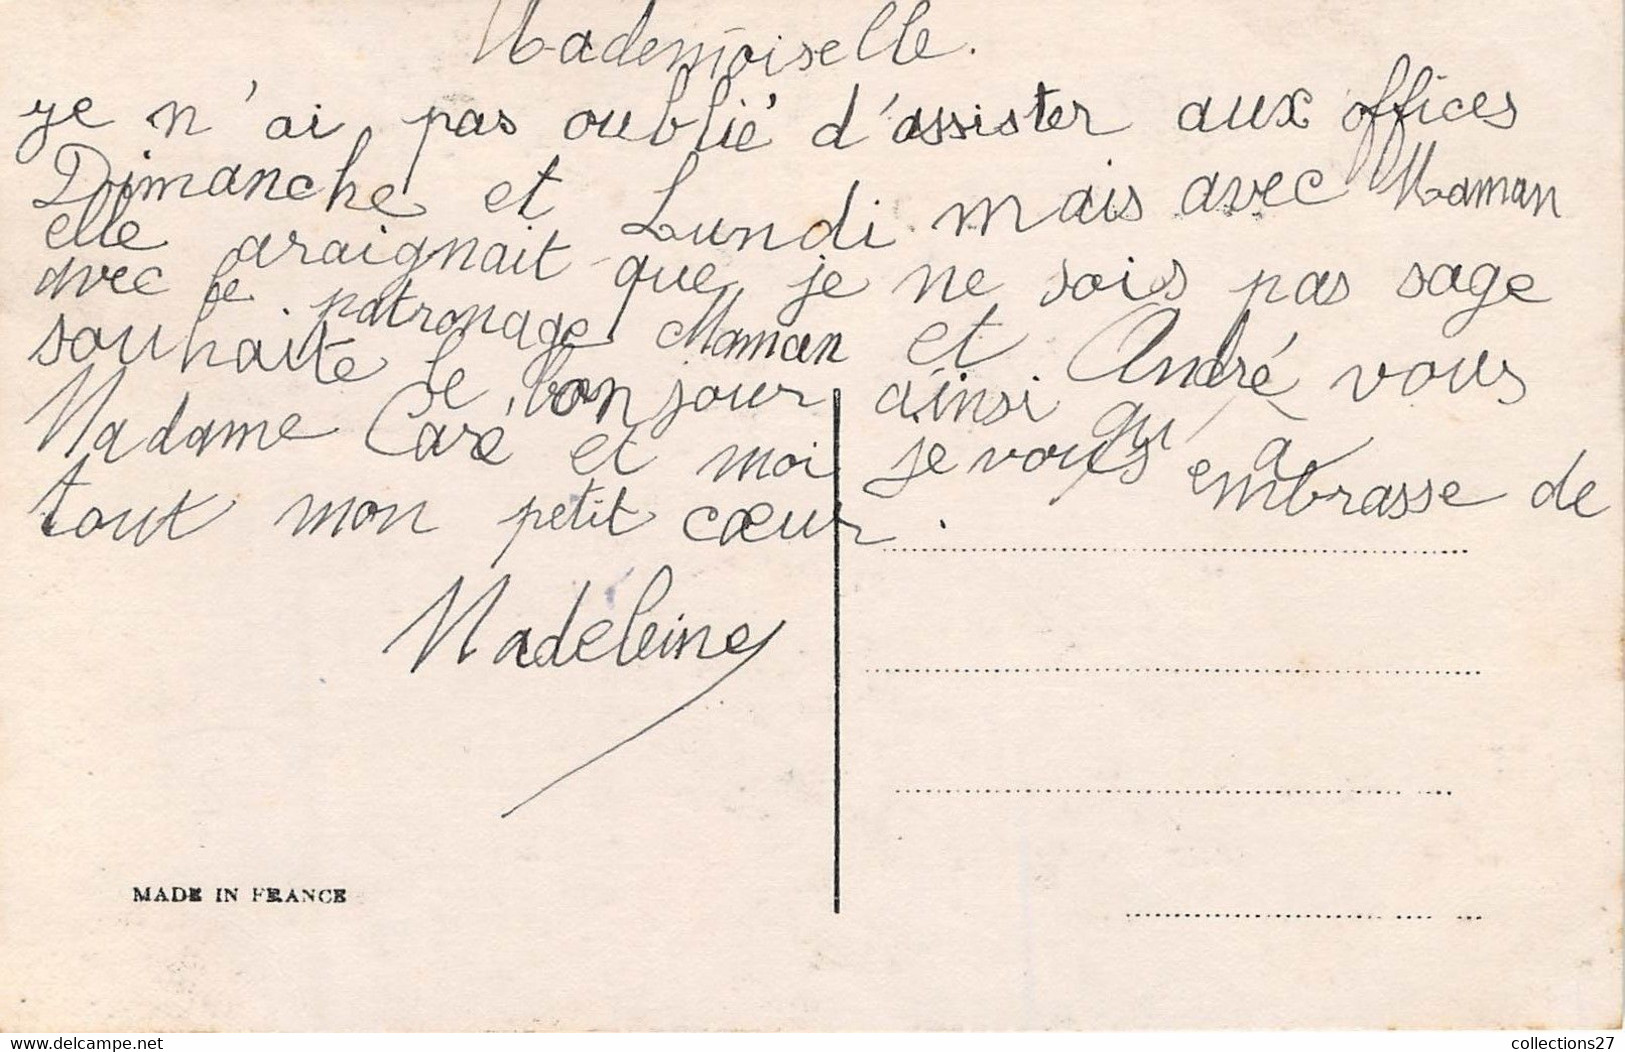 Mademoiselle.
je n'ai pas oublié d'assister aux offices
Dimanche et Lundi mais avec Maman
elle araignait que je ne sois pas sage
avec le patronage Maman et André vous
souhaite le bonjour ainsi qu'a
Madame Caré et moi je vous embrasse de
tout mon petit cœur.
Madeleine
MADE IN FRANCE
collections27